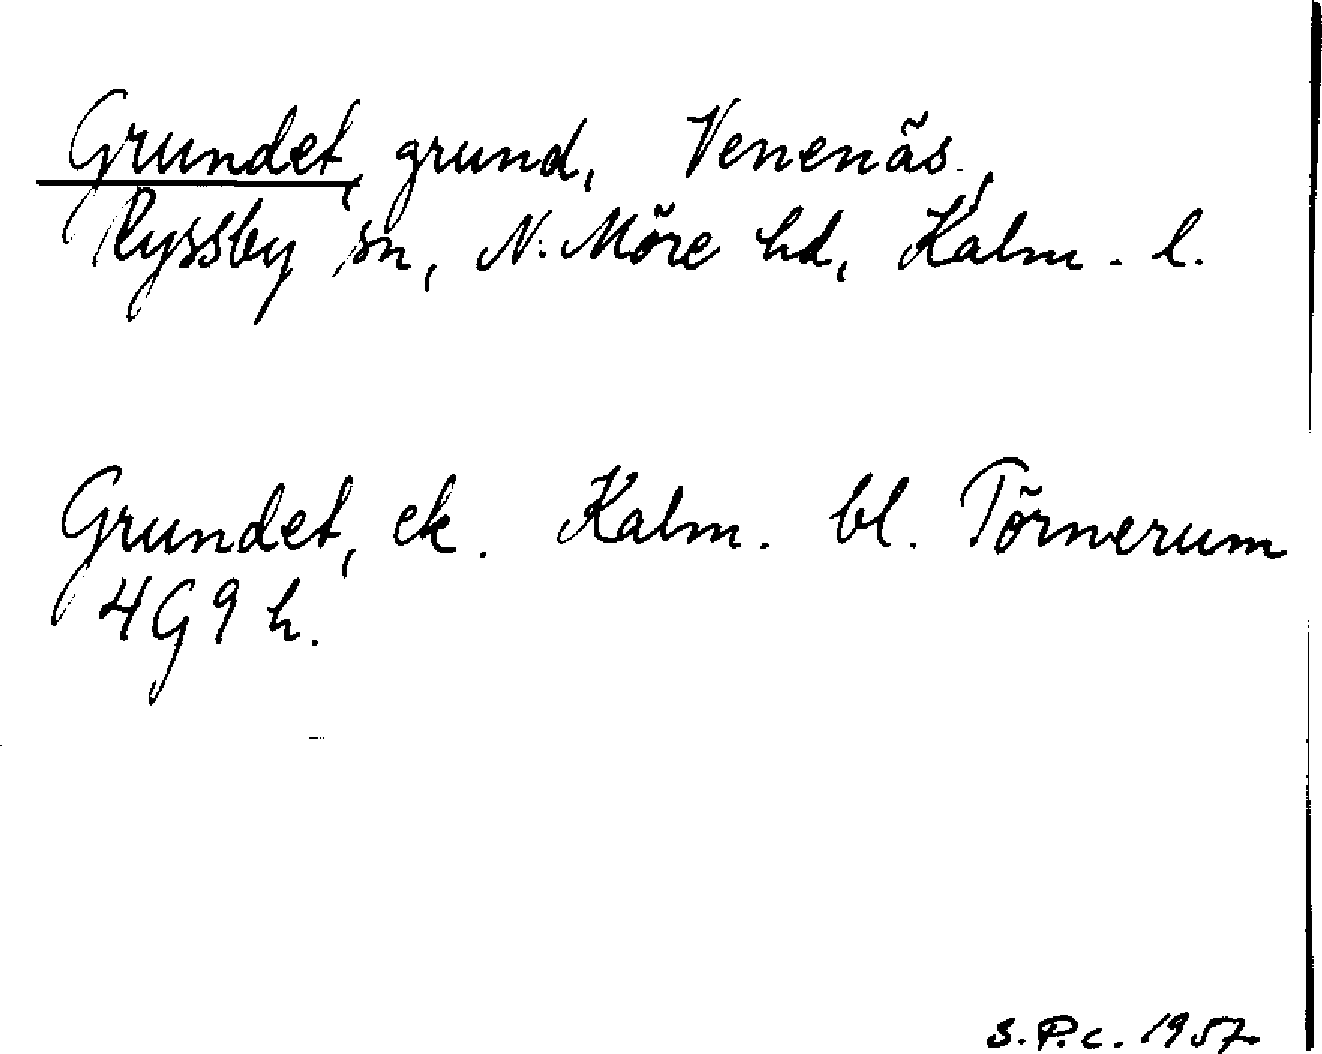 Grundet, grund, Venenäs,
Ryssby sn, N. Möre hd, Kalm. l.
Grundet, ek. Kalm. bl. Törnerum
4G9h.
S.P.c. 1957